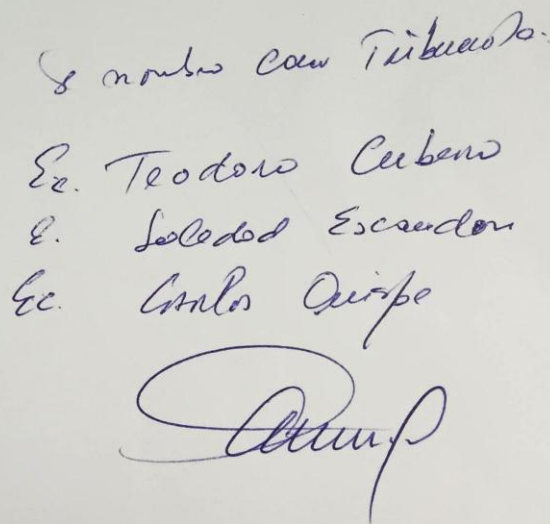 Se nombra como Tribunal.
Ec. Teodoro Cubero
E. Soledad Escandon
Ec. Carlos Quispe